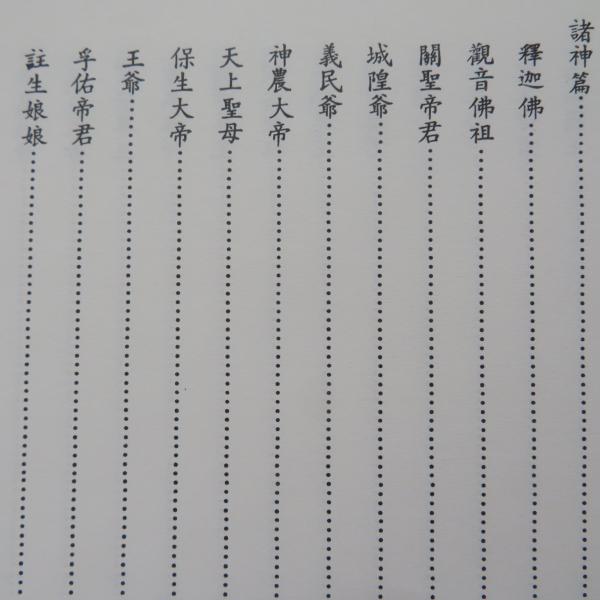 諸神篇
釋迦佛
觀音佛祖
關聖帝君
城隍爺
義民爺
神農大帝
天上聖母
保生大帝
王爺
孚佑帝君
註生娘娘